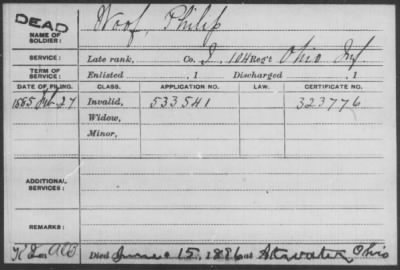 DEAD
NAME OF SOLDIER:
Woof, Philip
SERVICE: Late rank, Co. I, 104 Reg't Ohio Inf.
TERM OF SERVICE: Enlisted , 1 Discharged , 1
DATE OF FILING. CLASS. APPLICATION NO. LAW. CERTIFICATE NO.
1885 27 Invalid, 533541 323776
Widow,
Minor,
ADDITIONAL SERVICES:
REMARKS:
Died June 15, 1896 at Atwater, Ohio